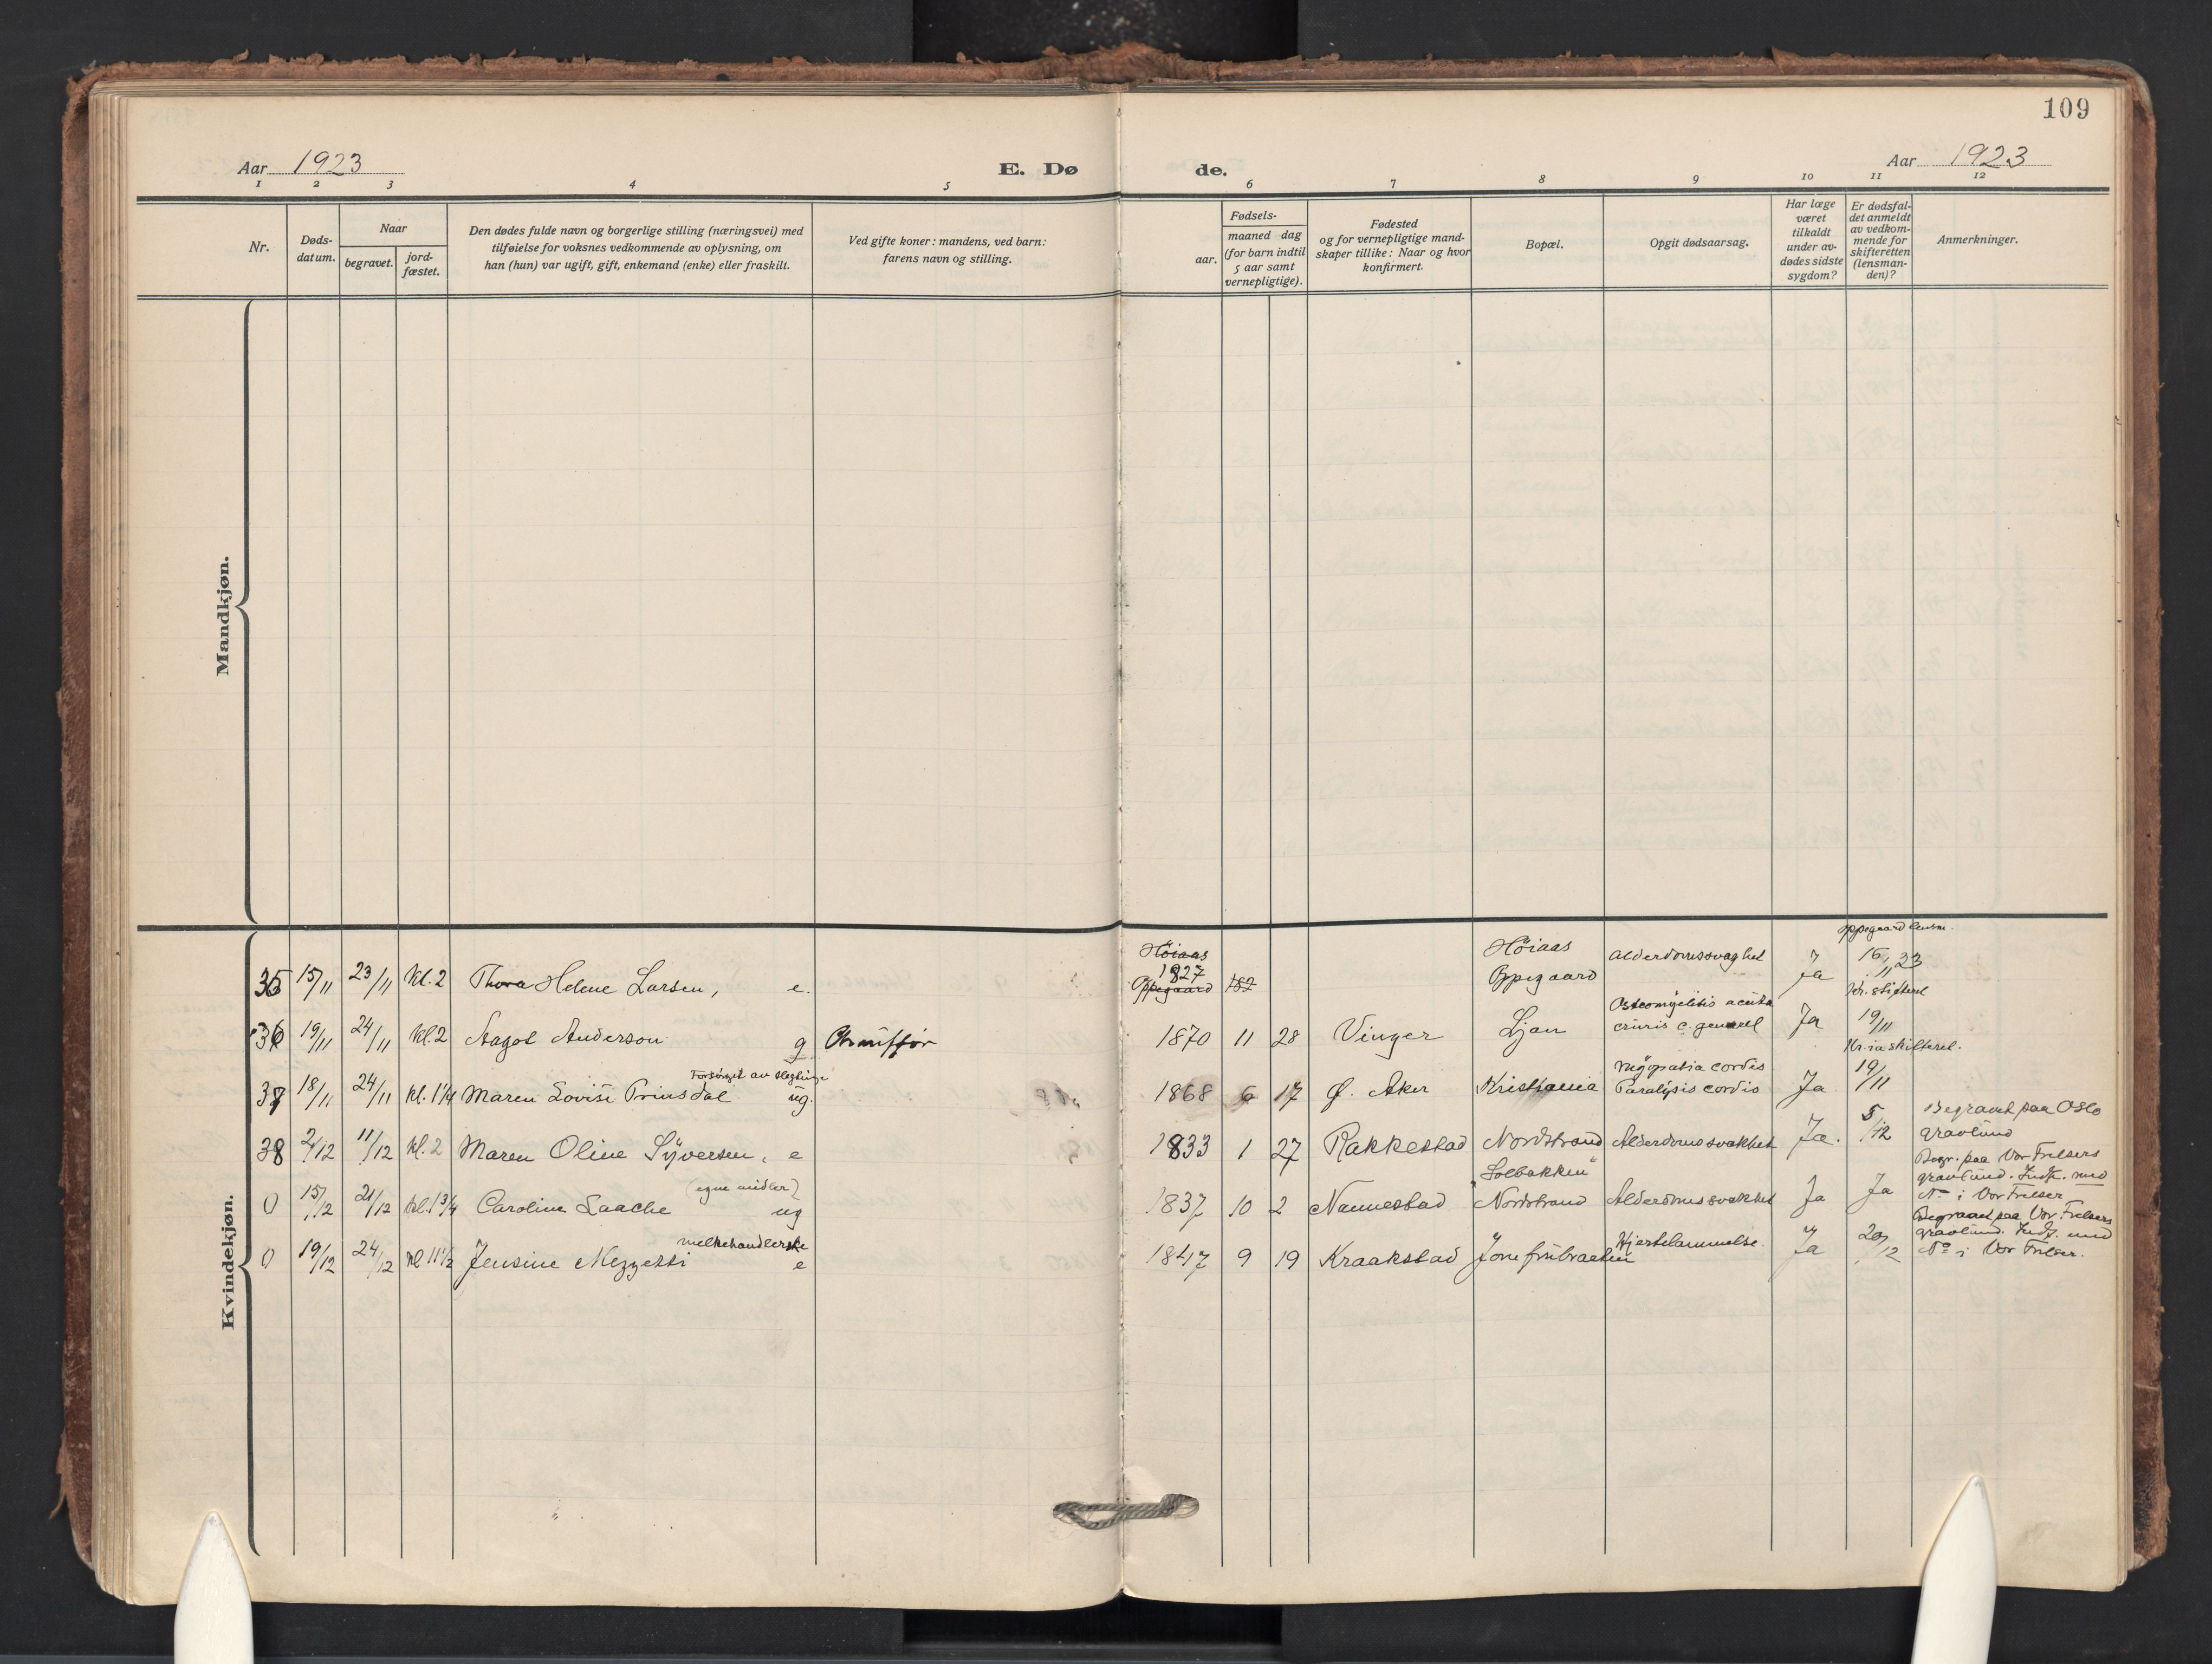 109
Aar 1923
E. Dø de.
Aar 1923
1 2 3 4 5 6 7 8 9 10 11 12
Nr.
Døds-
datum.
Naar
begravet.
jord-
fæstet.
Den dødes fulde navn og borgerlige stilling (næringsvei) med
tilføielse for voksnes vedkommende av oplysning, om
han (hun) var ugift, gift, enkemand (enke) eller fraskilt.
Ved gifte koner: mandens, ved barn:
farens navn og stilling.
Fødsels-
aar.
maaned dag
(for barn indtil
5 aar samt
vernepligtige).
Fødested
og for vernepligtige mand-
skaper tillike: Naar og hvor
konfirmert.
Bopæl.
Opgit dødsaarsag.
Har læge
været
tilkaldt
under av-
dødes sidste
sygdom?
Er dødsfal-
det anmeldt
av vedkom-
mende for
skifteretten
(lensman-
den)?
Anmerkninger.
Mandkjøn.
Kvindekjøn.
Oppegaard lensm.
35 15/11 23/11 Kl. 2 Thora Helene Larsen, e. Höiaas 1827 Oppegaard Höiaas Oppegaard Alderdomssvaghet Ja 16/11 23
Kr. skifteret
36 19/11 24/11 Kl. 2 Aagot Anderson g 1870 11 28 Vinger Ljan Osteomyelitis acuta cruris Ja 19/11
Kr.ia skifteret.
37 18/11 24/11 Kl. 1 1/4 Maren Lovise Prinsdal Forsørget av slegtninge ug. 1868 6 17 Ø. Aker Kristiania Myopatia cordis Paralysis cordis Ja 19/11
38 2/12 11/12 Kl. 2 Maren Oline Syversen, e 1833 1 27 Rakkestad Nordstrand Alderdomssvakhet Ja. 5/12 Begravet paa Oslo gravlund
0 15/12 21/12 Kl. 1 3/4 Caroline Laache (egne midler) ug 1837 10 2 Nannestad "Solbakken" Nordstrand Alderdomssvakhet Ja Ja Begr. paa Vor Frelsers gravlund. Indf. med No i Vor Frelser
0 19/12 24/12 Kl 11 1/2 Jensine Mezzetti melkehandlerske e 1847 9 19 Kraakstad Jomfrubraaten Hjertelammelse. Ja 20/12 Begravet paa Vor Frelsers gravlund. Indf. med No i Vor Frelser.